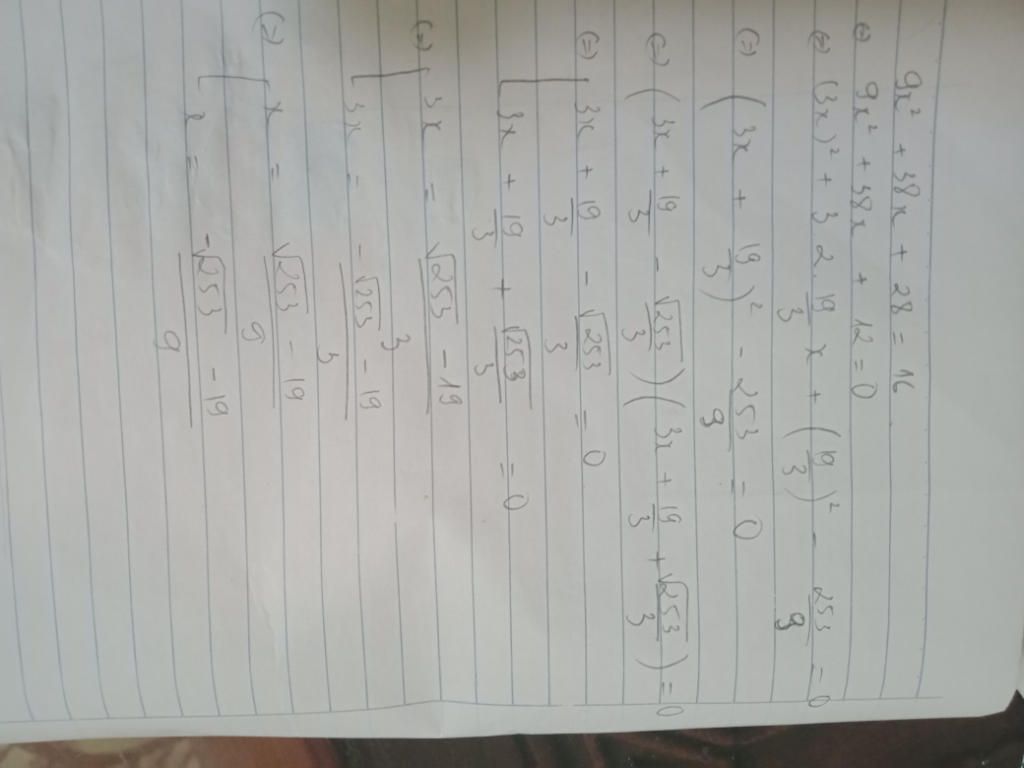 9x² + 38x + 28 = 16
(=) 9x² + 38x + 12 = 0
(=) (3x)² + 3 2 19/3 x + (19/3)² - 253/9 = 0
(=) (3x + 19/3)² - 253/9 = 0
(=) (3x + 19/3 - √253/3)(3x + 19/3 + √253/3) = 0
(=) [ 3x + 19/3 - √253/3 = 0
3x + 19/3 + √253/3 = 0
(=) [ 3x = √253 - 19/3
3x = -√253 - 19/3
(=) [ x = √253 - 19/9
x = -√253 - 19/9